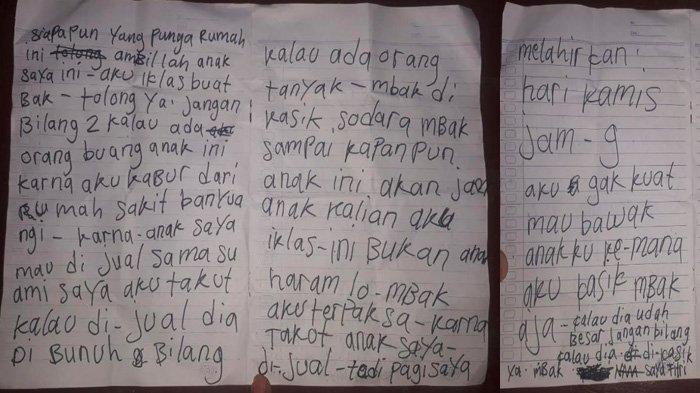 siapapun yang punga Rumah
ini tolong ambillah anak
saya ini - aku iklas buat
Bak - tolong ya. jangan
Bilang 2 kalau ada
orang buang anak ini
karna aku kabur dari
Rumah sakit banyua
ngi - karna - anak saya
mau di jual sama su
ami saya aku takut
kalau di - jual dia
Di Bunuh Bilang
kalau ada orang
tanyak - mbak di
kasik sodara mbak
sampai kapan pun
anak ini akan jadi
anak kalian aku
iklas - ini Bukan anak
haram lo - mbak
aku terpaksa - karna
Takot anak saya -
di - jual - tadi pagi saya
melahirkan.
hari kamis
jam - 9
aku gak kuat
mau bawak
anakku ke - mana
aku basik mbak
aja - kalau dia udah
Besar jangan bilang
kalau dia di - kasik
ya. mbak saya Fitri